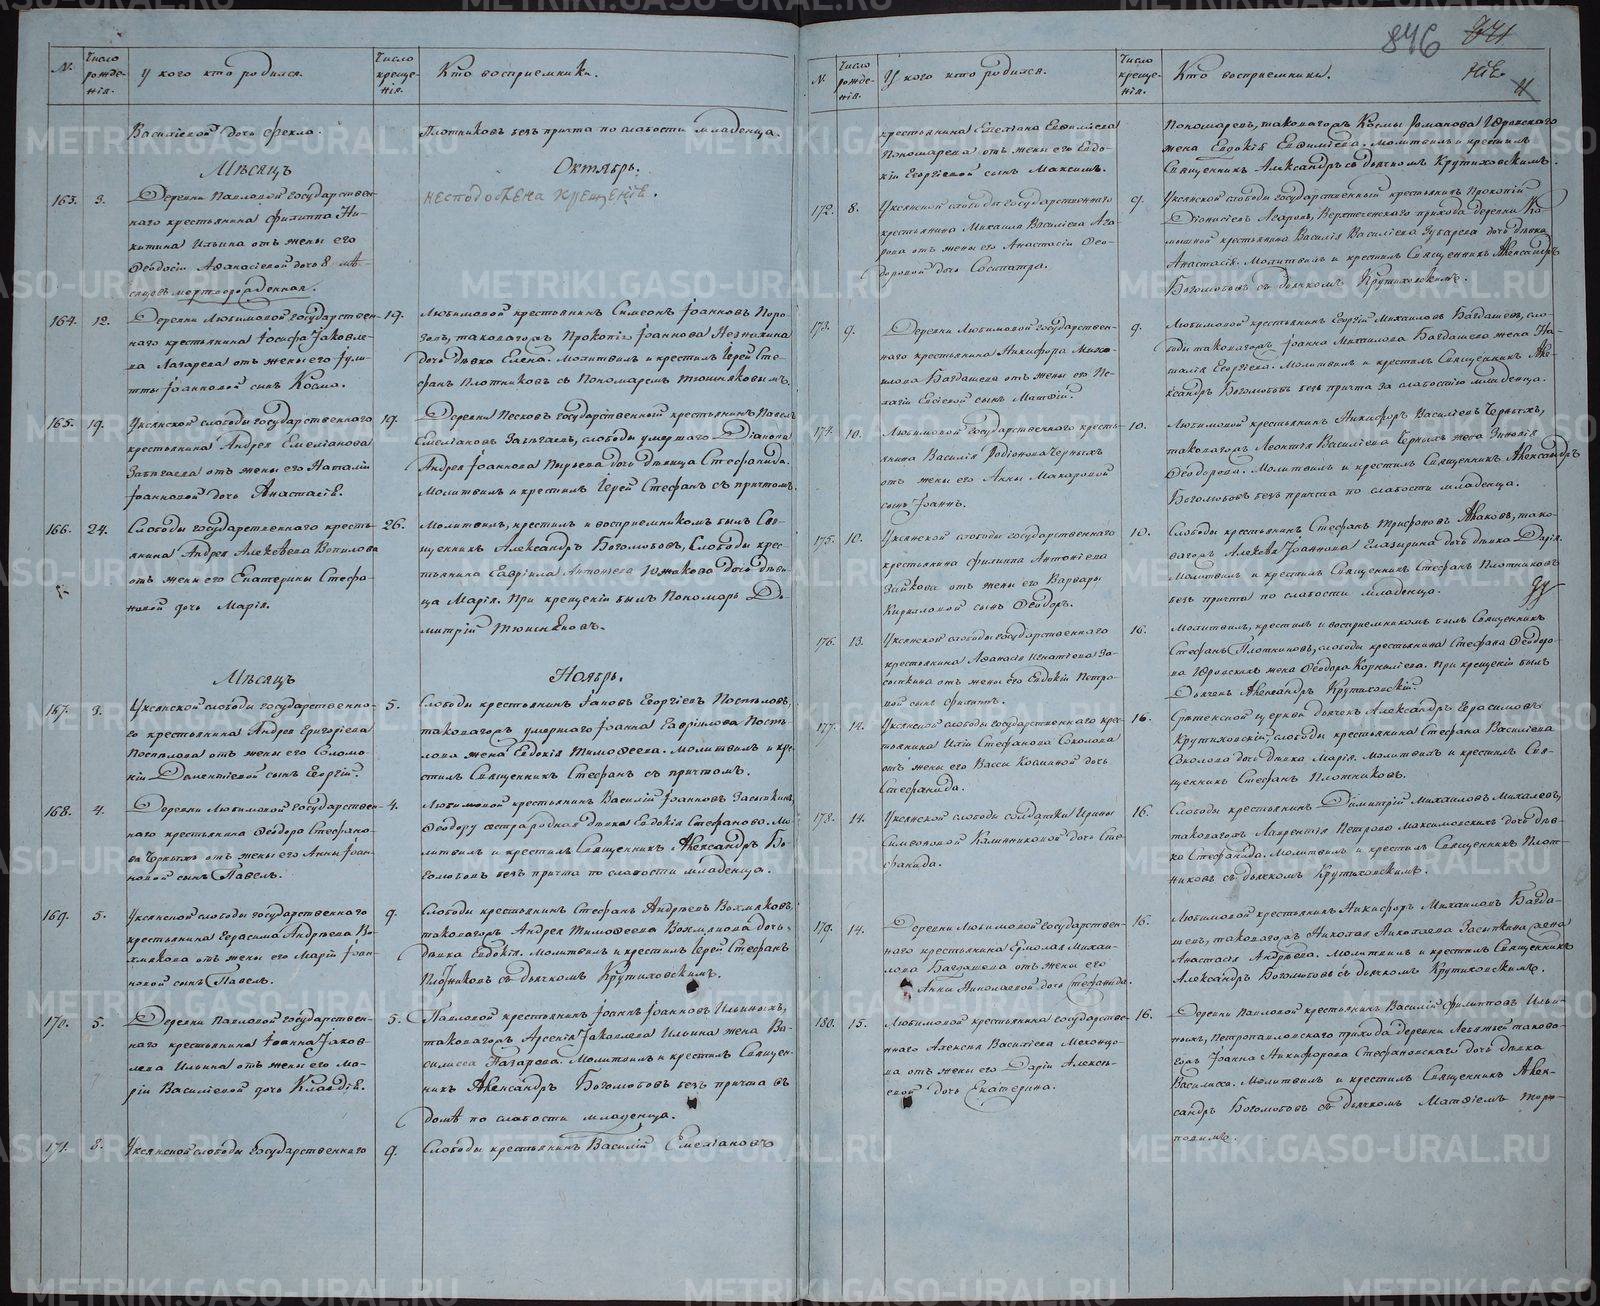 846
№.
Число рожде-нія.
У кого кто родился.
Число креще-нія.
Кто восприемники.
Василіевой дочь Фекла.
Плотниковъ безъ причта по слабости младенца.
Мѣсяцъ
Октябрь.
163.
3.
Деревни Павловой государствен-
наго крестьянина Филиппа Ни-
китина Ильина отъ жены его
Ѳеодосіи Аѳанасіевой дочь 8 мѣ-
сяцовъ мертворожденная.
164.
12.
Деревни Любимовой государствен-
наго крестьянина Іосифа Іаковле-
ва Лагарева отъ жены его Іули-
тты Іоанновой сынъ Косма.
19.
Любимовой крестьянинъ Симеонъ Іоанновъ
таковагожъ Прокопія Іоаннова
дочь дѣвка Елена. Молитвилъ и крестилъ Іерей Сте-
фанъ Плотниковъ съ Пономаремъ Тюшняковымъ.
165.
19.
Уксянской слободы государственнаго
крестьянина Андрея Емеліанова
отъ жены его Наталіи
Іоанновой дочь Анастасія.
19.
Деревни Песковъ государственный крестьянинъ Павелъ
Емеліановъ слободы умершаго Діакона
Андрея Іоаннова дочь дѣвица Стефанида.
Молитвилъ и крестилъ Іерей Стефанъ съ причтомъ.
166.
24.
Слободы государственнаго кресть-
янина Андрея Алексѣева Вопилова
отъ жены его Екатерины Стефа-
новой дочь Марія.
26.
Молитвилъ, крестилъ и восприемникомъ былъ Свя-
щенникъ Александръ Боголюбовъ, Слободы крес-
тьянина Гавріила Антоніева Южакова дочь дѣви-
ца Марія. При крещеніи былъ Пономарь Ди-
митрій Тюшняковъ.
Мѣсяцъ
Ноябрь.
167.
3.
Уксянской слободы государственна-
го крестьянина Андрея Григоріева
Поспѣлова отъ жены его Соломо-
ніи сынъ Георгій.
5.
Слободы крестьянинъ Іаковъ Георгіевъ Поспѣловъ,
таковагожъ умершаго Іоанна Гавріилова Поспѣ-
лова жена Евдокія Тимоѳеева. Молитвилъ и кре-
стилъ Священникъ Стефанъ съ причтомъ.
168.
4.
Деревни Любимовой государствен-
наго крестьянина Ѳеодора Стефано-
ва Черныхъ отъ жены его Анны Іоан-
новой сынъ Павелъ.
4.
Любимовой крестьянинъ Василій Іоанновъ Засыпкинъ,
Ѳеодору сестра родная дѣвка Евдокія Стефанова. Мо-
литвилъ и крестилъ Священникъ Александръ Бо-
голюбовъ безъ причта по слабости младенца.
169.
5.
Уксянской слободы государственнаго
крестьянина Герасима Андреева Во-
хмякова отъ жены его Маріи Іоан-
новой сынъ Павелъ.
9.
Слободы крестьянинъ Стефанъ Андреевъ Вохмяковъ,
таковагожъ Андрея Тимоѳеева Вохмякова дочь
дѣвка Евдокія. Молитвилъ и крестилъ Іерей Стефанъ
Плотниковъ съ дьячкомъ Крутиховскимъ.
170.
5.
Деревни Павловой государствен-
наго крестьянина Іоанна Іаков-
лева Ильина отъ жены его Ма-
ріи Василіевой дочь Клавдія.
5.
Павловой крестьянинъ Іоаннъ Іоанновъ Ильиныхъ,
таковагожъ Арсенія Іаковлева Ильина жена Ва-
силисса Назарова. Молитвилъ и крестилъ Священ-
никъ Александръ Боголюбовъ безъ причта въ
домѣ по слабости младенца.
171.
8.
Уксянской слободы государственнаго
9.
Слободы крестьянинъ Василій Емеліановъ
№.
Число рожде-нія.
У кого кто родился.
Число креще-нія.
Кто восприемники.
крестьянина Емеліана Евѳиміева
Пономарева отъ жены его Евдо-
кіи Георгіевой сынъ Максимъ.
Пономаревъ, таковагожъ Космы Романова Юровскаго
жена Евдокія Евѳиміева. Молитвилъ и крестилъ
Священникъ Александръ съ дьячкомъ Крутиховскимъ.
172.
8.
Уксянской слободы государственнаго
крестьянина Михаила Василіева
отъ жены его Анастасіи Ѳео-
доровой дочь Сосипатра.
9.
Уксянской слободы государственный крестьянинъ Прокопій
Діонисіевъ прихода деревни
крестьянина Василія Василіева Зубарева дочь дѣвка
Анастасія. Молитвилъ и крестилъ Священникъ Александръ
Боголюбовъ съ дьячкомъ Крутиховскимъ.
173.
9.
Деревни Любимовой государствен-
наго крестьянина Никифора Миха-
илова Багдашева отъ жены его Пе-
лагіи сынъ Матѳій.
9.
Любимовой крестьянинъ Георгій Михаиловъ Багдашевъ, сло-
боды таковагожъ Іоанна Михаилова Багдашева жена На-
талія Георгіева. Молитвилъ и крестилъ Священникъ Але-
ксандръ Боголюбовъ безъ причта за слабостію младенца.
174.
10.
Любимовой государственнаго кресть-
янина Василія Родіонова Черныхъ
отъ жены его Анны Макаровой
сынъ Іоаннъ.
10.
Любимовой крестьянинъ Никифоръ Василіевъ Черныхъ,
таковагожъ Леонтія Василіева Черныхъ жена Зиновія
Ѳеодорова. Молитвилъ и крестилъ Священникъ Александръ
Боголюбовъ безъ причта по слабости младенца.
175.
10.
Уксянской слободы государственнаго
крестьянина Филиппа Антоніева
Зайкова отъ жены его Варвары
Кирилловой сынъ Ѳеодоръ.
10.
Слободы крестьянинъ Стефанъ Трифоновъ тако-
вагожъ Алексѣя Іоаннова Глазырина дочь дѣвка Дарія.
Молитвилъ и крестилъ Священникъ Стефанъ Плотниковъ
безъ причта по слабости младенца.
176.
13.
Уксянской слободы государственнаго
крестьянина Аѳанасія Игнатіева За-
сыпкина отъ жены его Евдокіи Петро-
вой сынъ Филиппъ.
16.
Молитвилъ, крестилъ и восприемникомъ былъ Священникъ
Стефанъ Плотниковъ, слободы крестьянина Стефана Ѳеодоро-
ва Юровскихъ жена Ѳеодора Корниліева. При крещеніи былъ
Дьячекъ Александръ Крутиховскій.
177.
14.
Уксянской слободы государственнаго крес-
тьянина Иліи Стефанова Соколова
отъ жены его Вассы Косминой дочь
Стефанида.
16.
Срѣтенской церкви дьячекъ Александръ Герасимовъ
Крутиховскій, слободы крестьянина Стефана Василіева
Соколова дочь дѣвка Марія. Молитвилъ и крестилъ Свя-
щенникъ Стефанъ Плотниковъ.
178.
14.
Уксянской слободы солдатки Ирины
Симеоновой Калашниковой дочь Сте-
фанида.
16.
Слободы крестьянинъ Димитрій Михаиловъ Михалевъ,
таковагожъ Лаврентія Петрова Максимовскихъ дочь дѣв-
ка Стефанида. Молитвилъ и крестилъ Священникъ Плот-
никовъ съ дьячкомъ Крутиховскимъ.
179.
14.
Деревни Любимовой государствен-
наго крестьянина Ермолая Михаи-
лова Багдашева отъ жены его
Анны Николаевой дочь Стефанида.
16.
Любимовой крестьянинъ Никифоръ Михаиловъ Багда-
шевъ, таковагожъ Николая Николаева Засыпкина жена
Анастасія Андреева. Молитвилъ и крестилъ Священникъ
Александръ Боголюбовъ съ дьячкомъ Крутиховскимъ.
180.
15.
Любимовой крестьянина государстве-
ннаго Алексія Василіева Мехонце-
ва отъ жены его Даріи Алексѣ-
евой дочь Екатерина.
16.
Деревни Павловой крестьянинъ Василій Филипповъ Ильи-
ныхъ, Петропавловскаго прихода деревни таково-
гожъ Іоанна Никифорова Стефановскаго дочь дѣвка
Василисса. Молитвилъ и крестилъ Священникъ Алек-
сандръ Боголюбовъ съ дьячкомъ Матѳіемъ
METRIKI.GASO-URAL.RU